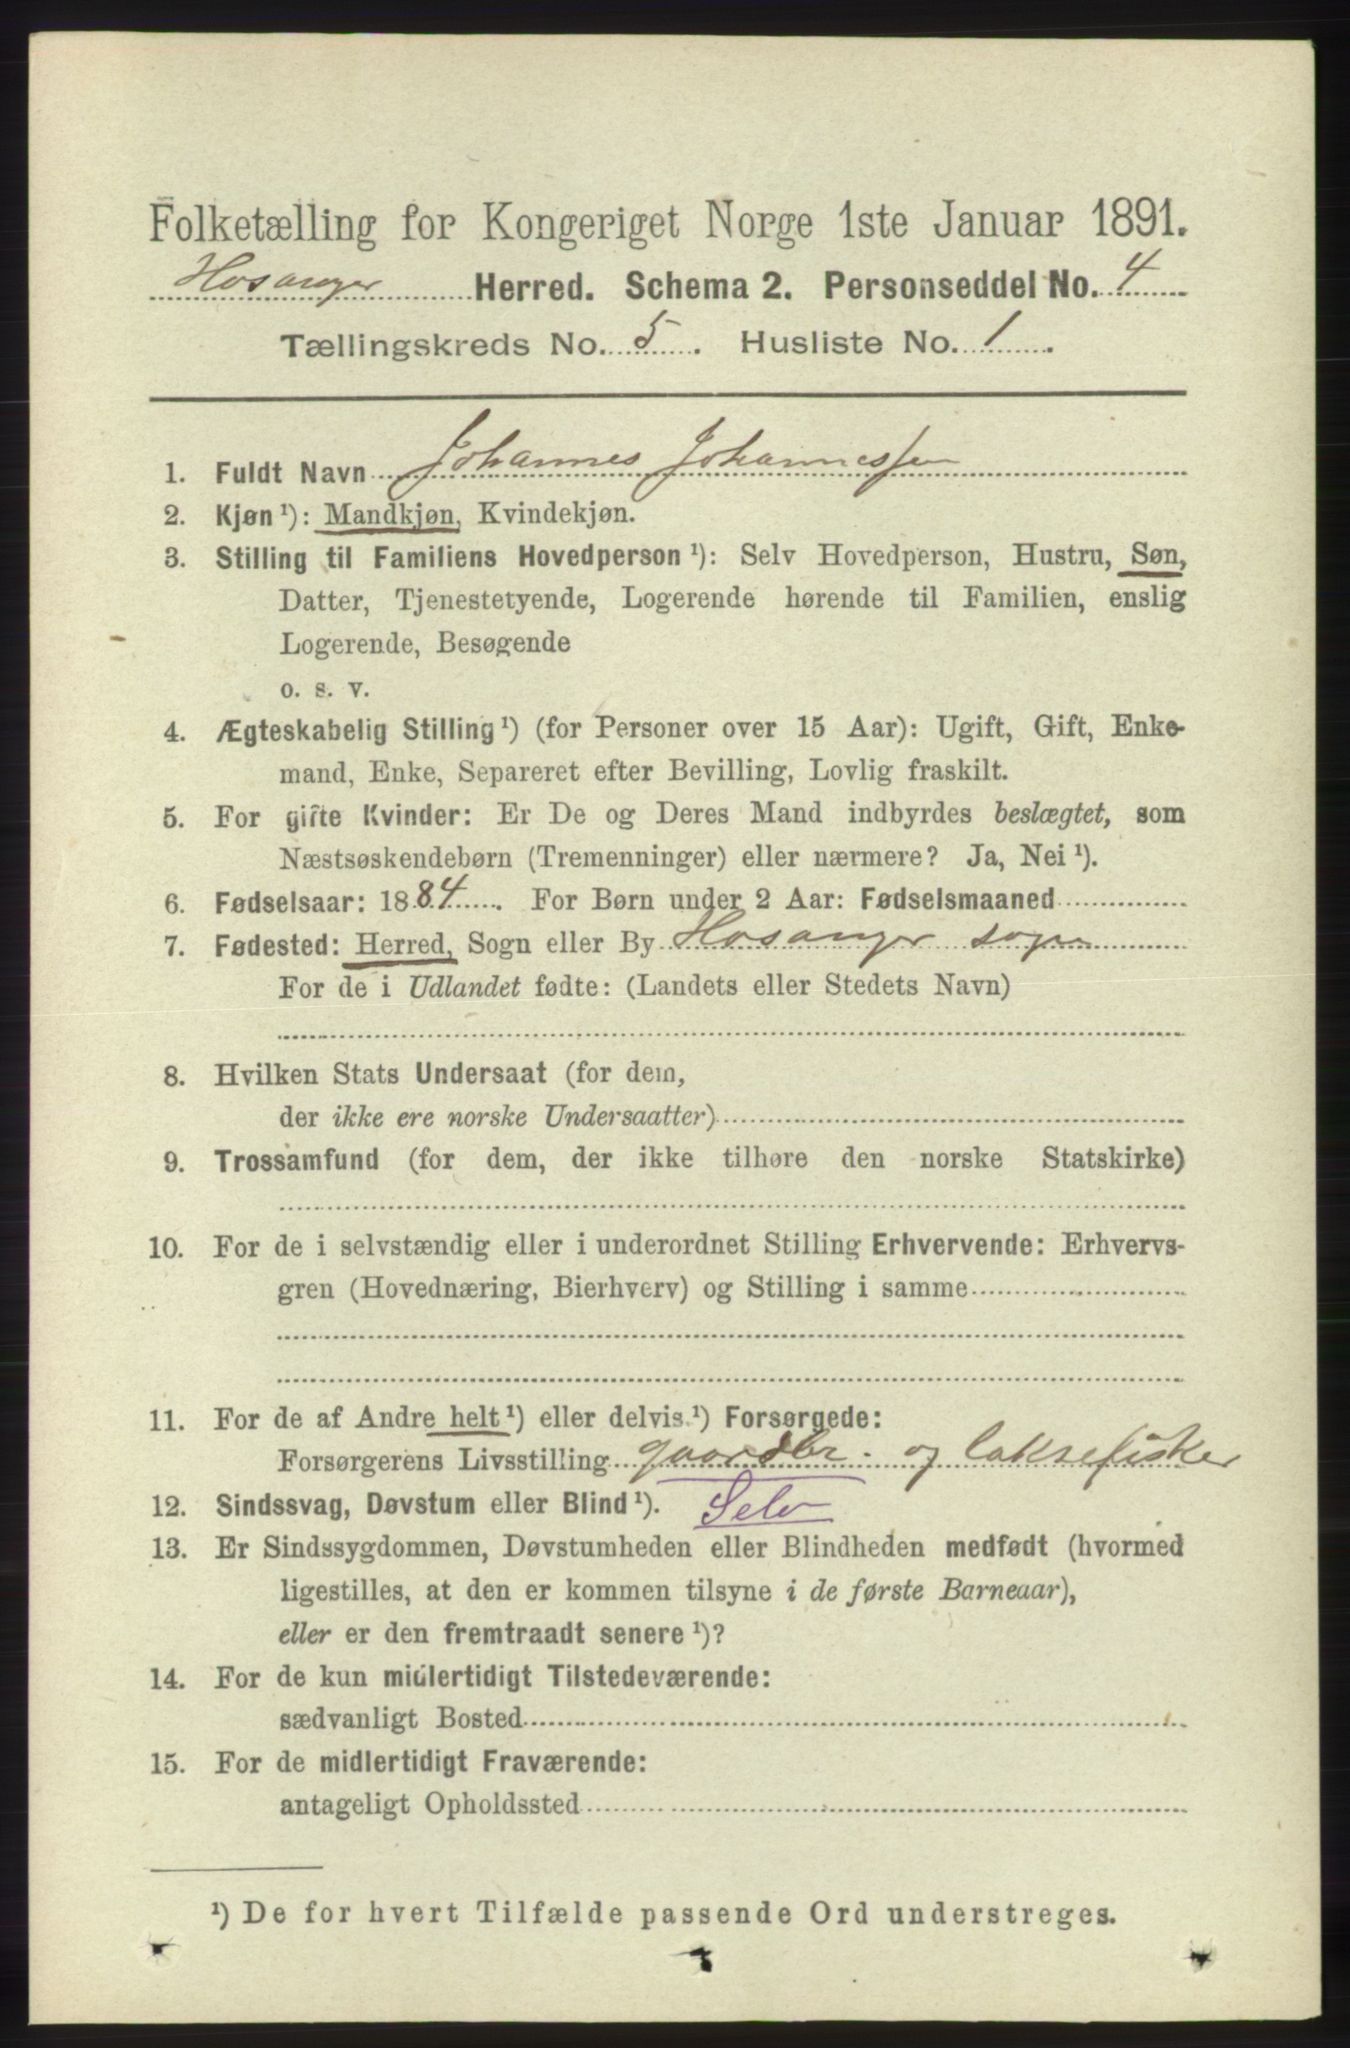 Folketælling for Kongeriget Norge 1ste Januar 1891.
Hosanger Herred. Schema 2. Personseddel No. 4
Tællingskreds No. 5. Husliste No. 1.
1. Fuldt Navn Johannes Johannessen
2. Kjøn ¹): Mandkjøn, Kvindekjøn.
3. Stilling til Familiens Hovedperson ¹): Selv Hovedperson, Hustru, Søn,
Datter, Tjenestetyende, Logerende hørende til Familien, enslig
Logerende, Besøgende
o. s. v.
4. Ægteskabelig Stilling ¹) (for Personer over 15 Aar): Ugift, Gift, Enke-
mand, Enke, Separeret efter Bevilling, Lovlig fraskilt.
5. For gifte Kvinder: Er De og Deres Mand indbyrdes beslægtet, som
Næstsøskendebørn (Tremenninger) eller nærmere? Ja, Nei ¹).
6. Fødselsaar: 1884. For Børn under 2 Aar: Fødselsmaaned
7. Fødested: Herred, Sogn eller By Hosanger sogn
For de i Udlandet fødte: (Landets eller Stedets Navn)
8. Hvilken Stats Undersaat (for dem,
der ikke ere norske Undersaatter)
9. Trossamfund (for dem, der ikke tilhøre den norske Statskirke)
10. For de i selvstændig eller i underordnet Stilling Erhvervende: Erhvervs-
gren (Hovednæring, Bierhverv) og Stilling i samme
11. For de af Andre helt ¹) eller delvis ¹) Forsørgede:
Forsørgerens Livsstilling gaardbr. og laksefisker
12. Sindssvag, Døvstum eller Blind ¹). Selv
13. Er Sindssygdommen, Døvstumheden eller Blindheden medfødt (hvormed
ligestilles, at den er kommen tilsyne i de første Barneaar),
eller er den fremtraadt senere ¹)?
14. For de kun midlertidigt Tilstedeværende:
sædvanligt Bosted
15. For de midlertidigt Fraværende:
antageligt Opholdssted
¹) De for hvert Tilfælde passende Ord understreges.